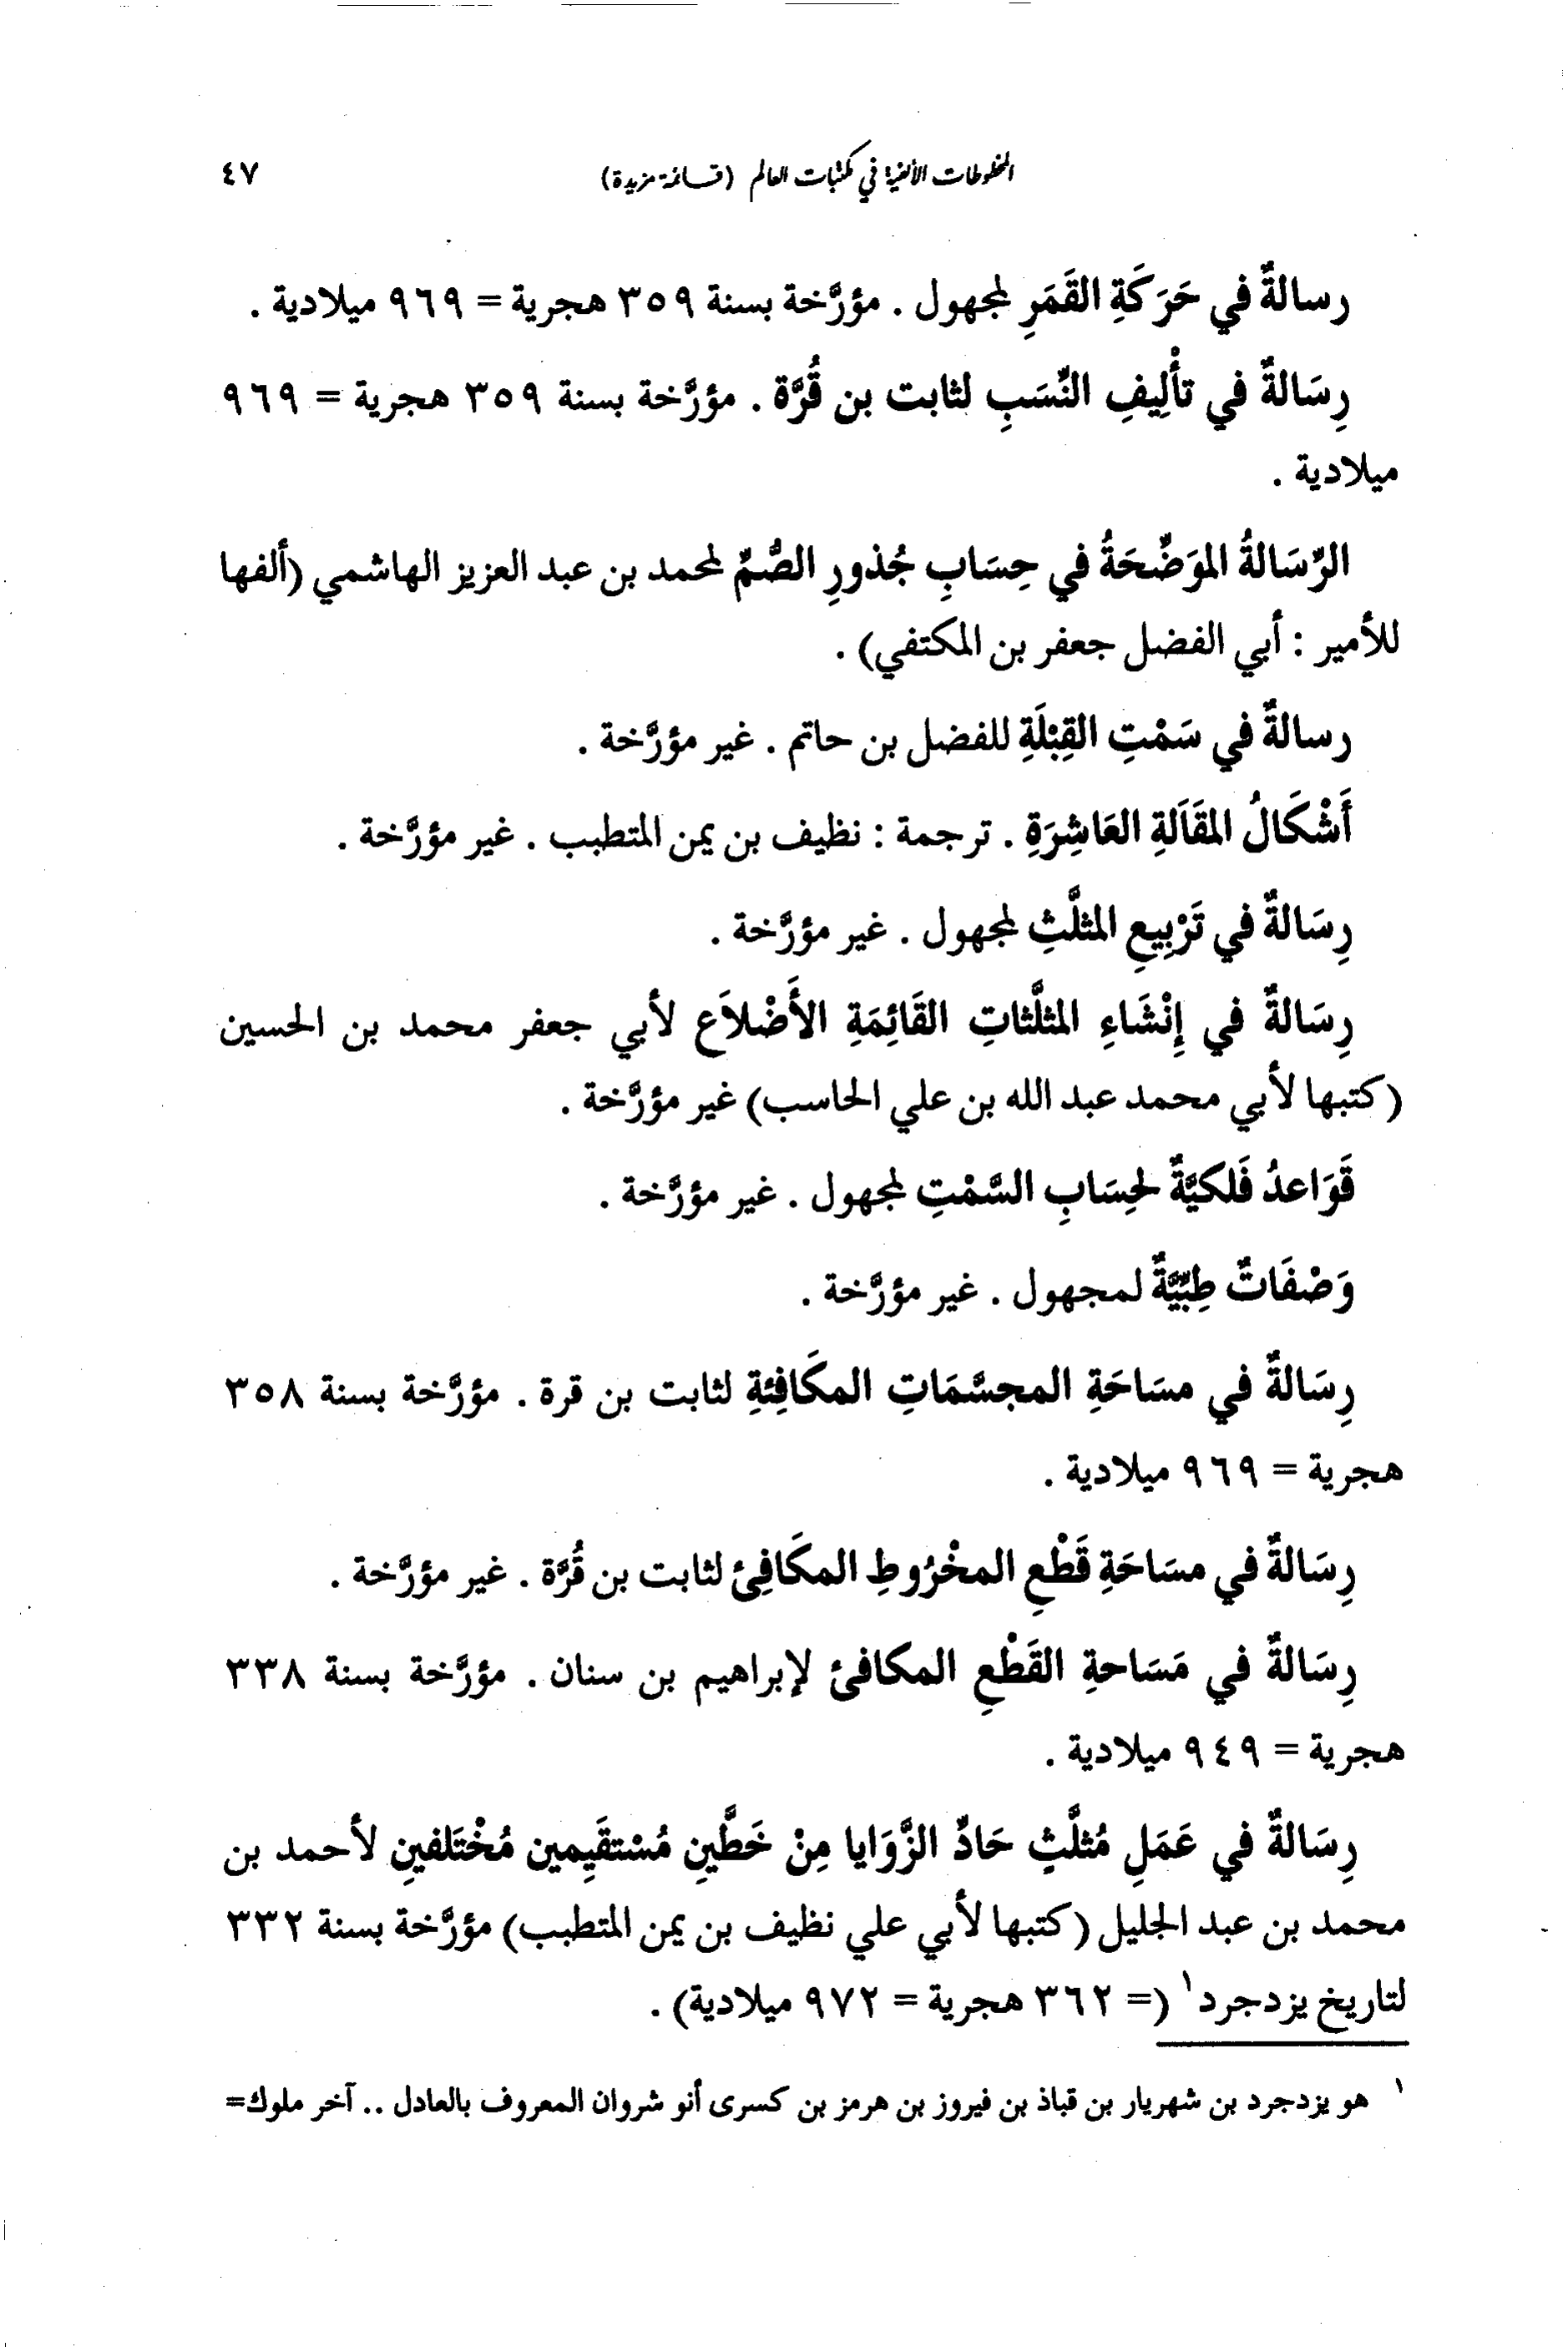 المخطوطات الألفية في مكتبات العالم (قائمة مزيدة) ٤٧
رسالةٌ في حَرَكَةِ القَمَرِ لمجهول . مؤرَّخة بسنة ٣٥٩ هجرية = ٩٦٩ ميلادية .
رِسَالةٌ في تأْلِيفِ النِّسَبِ لثابت بن قُرَّة . مؤرَّخة بسنة ٣٥٩ هجرية = ٩٦٩
ميلادية .
الرِّسَالةُ الموَضِّحَةُ في حِسَابِ جُذورِ الصُّمِّ لمحمد بن عبد العزيز الهاشمي (ألفها
للأمير : أبي الفضل جعفر بن المكتفي) .
رسالةٌ في سَمْتِ القِبْلَةِ للفضل بن حاتم . غير مؤرَّخة .
أَشْكَالُ المقَالَةِ العَاشِرَةِ . ترجمة : نظيف بن يمن المتطبب . غير مؤرَّخة .
رِسَالةٌ في تَرْبِيعِ المثلَّثِ لمجهول . غير مؤرَّخة .
رِسَالةٌ في إِنْشَاءِ المثلَّثاتِ القَائِمَةِ الأَضْلاَعِ لأبي جعفر محمد بن الحسين
(كتبها لأبي محمد عبد الله بن علي الحاسب) غير مؤرَّخة .
قَوَاعدُ فَلكيَّةٌ لحِسَابِ السَّمْتِ لمجهول . غير مؤرَّخة .
وَصْفَاتٌ طِبِّيَّةٌ لمجهول . غير مؤرَّخة .
رِسَالةٌ في مسَاحَةِ المجسَّمَاتِ المكَافِئةِ لثابت بن قرة . مؤرَّخة بسنة ٣٥٨
هجرية = ٩٦٩ ميلادية .
رِسَالةٌ في مسَاحَةِ قَطْعِ المخْرُوطِ المكَافِئ لثابت بن قُرَّة . غير مؤرَّخة .
رِسَالةٌ في مَسَاحةِ القَطْعِ المكافئ لإبراهيم بن سنان . مؤرَّخة بسنة ٣٣٨
هجرية = ٩٤٩ ميلادية .
رِسَالةٌ في عَمَلِ مُثلَّثٍ حَادِّ الزَّوَايا مِنْ خَطَّينِ مُسْتقَيِمين مُخْتَلفينِ لأحمد بن
محمد بن عبد الجليل (كتبها لأبي علي نظيف بن يمن المتطبب) مؤرَّخة بسنة ٣٣٢
لتاريخ يزدجرد١ (= ٣٦٢ هجرية = ٩٧٢ ميلادية) .
١ هو يزدجرد بن شهريار بن قباذ بن فيروز بن هرمز بن كسرى أنو شروان المعروف بالعادل .. آخر ملوك=